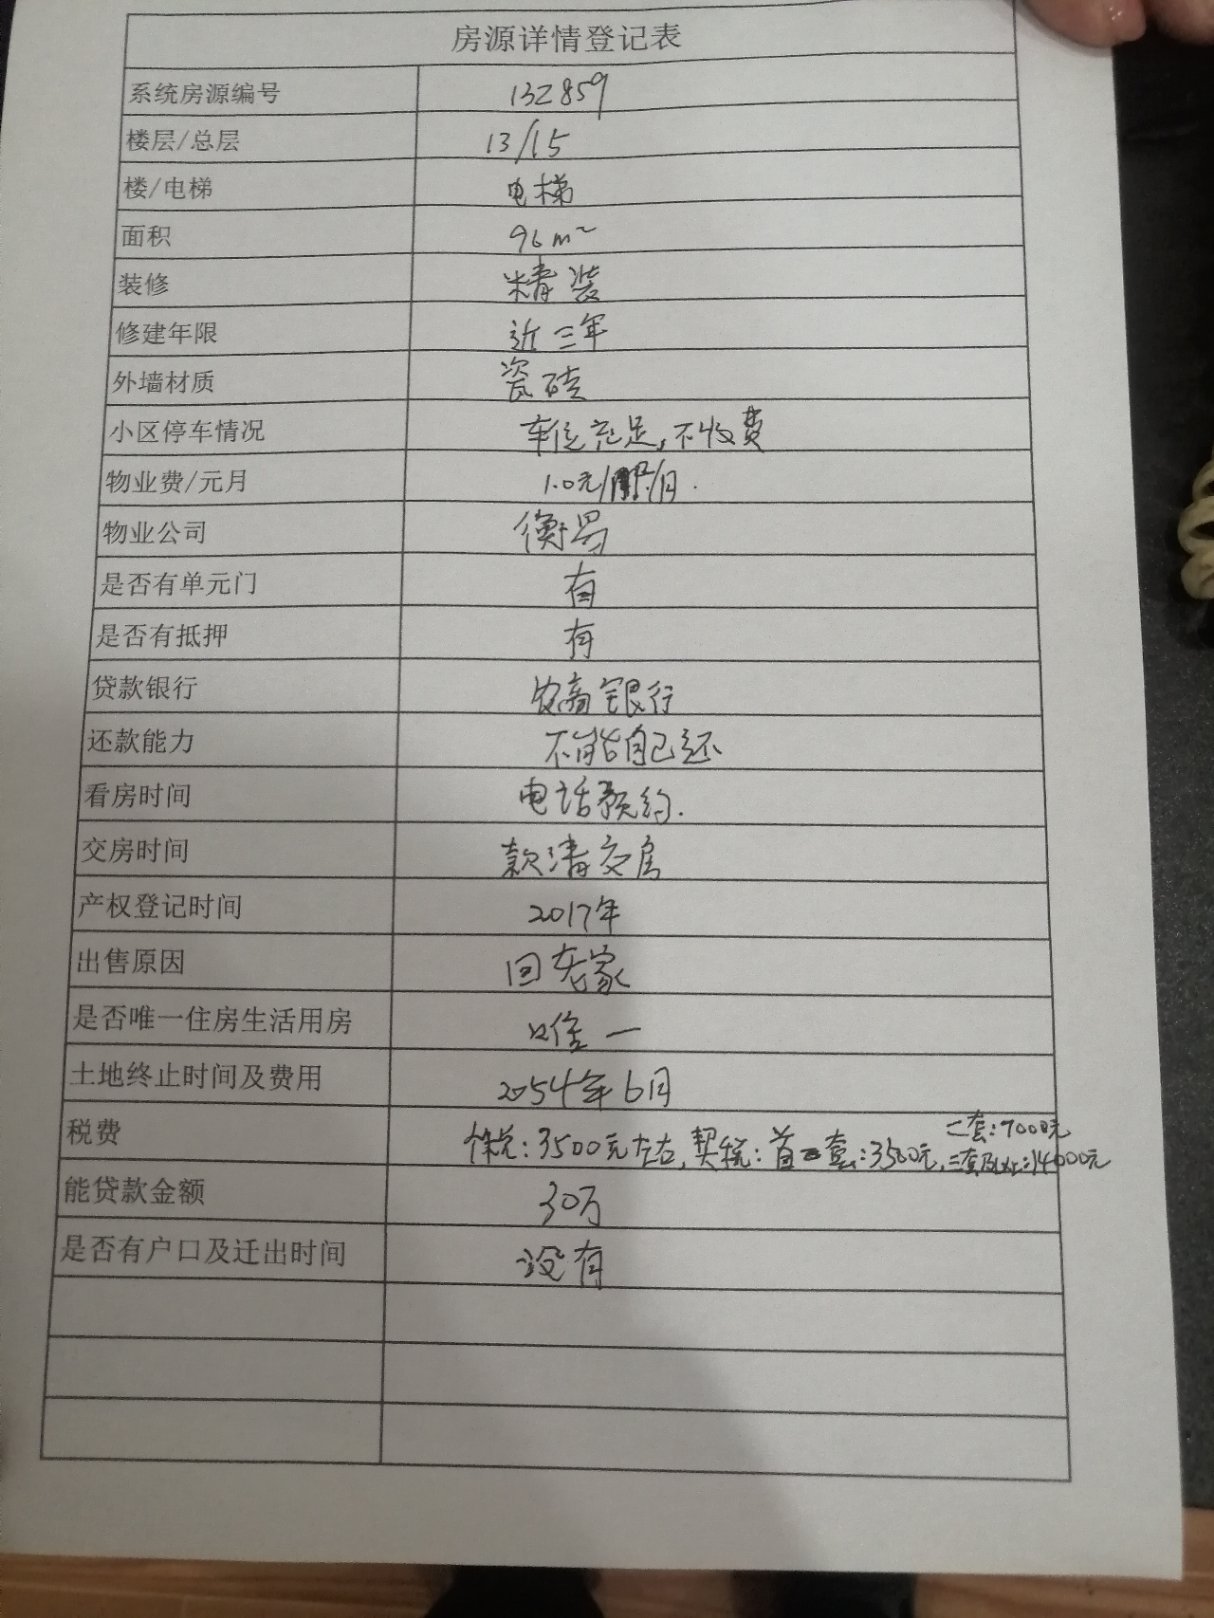 房源详情登记表
系统房源编号 132859
楼层/总层 13/15
楼/电梯 电梯
面积 96m²
装修 精装
修建年限 近三年
外墙材质 瓷砖
小区停车情况 车位充足,不收费
物业费/元月 1.0元/月.
物业公司 衡易
是否有单元门 有
是否有抵押 有
贷款银行 农商银行
还款能力 不能自己还
看房时间 电话预约.
交房时间 款清交房
产权登记时间 2017年
出售原因 回老家
是否唯一住房生活用房 唯一
土地终止时间及费用 2054年6月
二套:7000元
税费 个税:3500元左右,契税:首套:3500元,三套及以上:14000元
能贷款金额 30万
是否有户口及迁出时间 没有